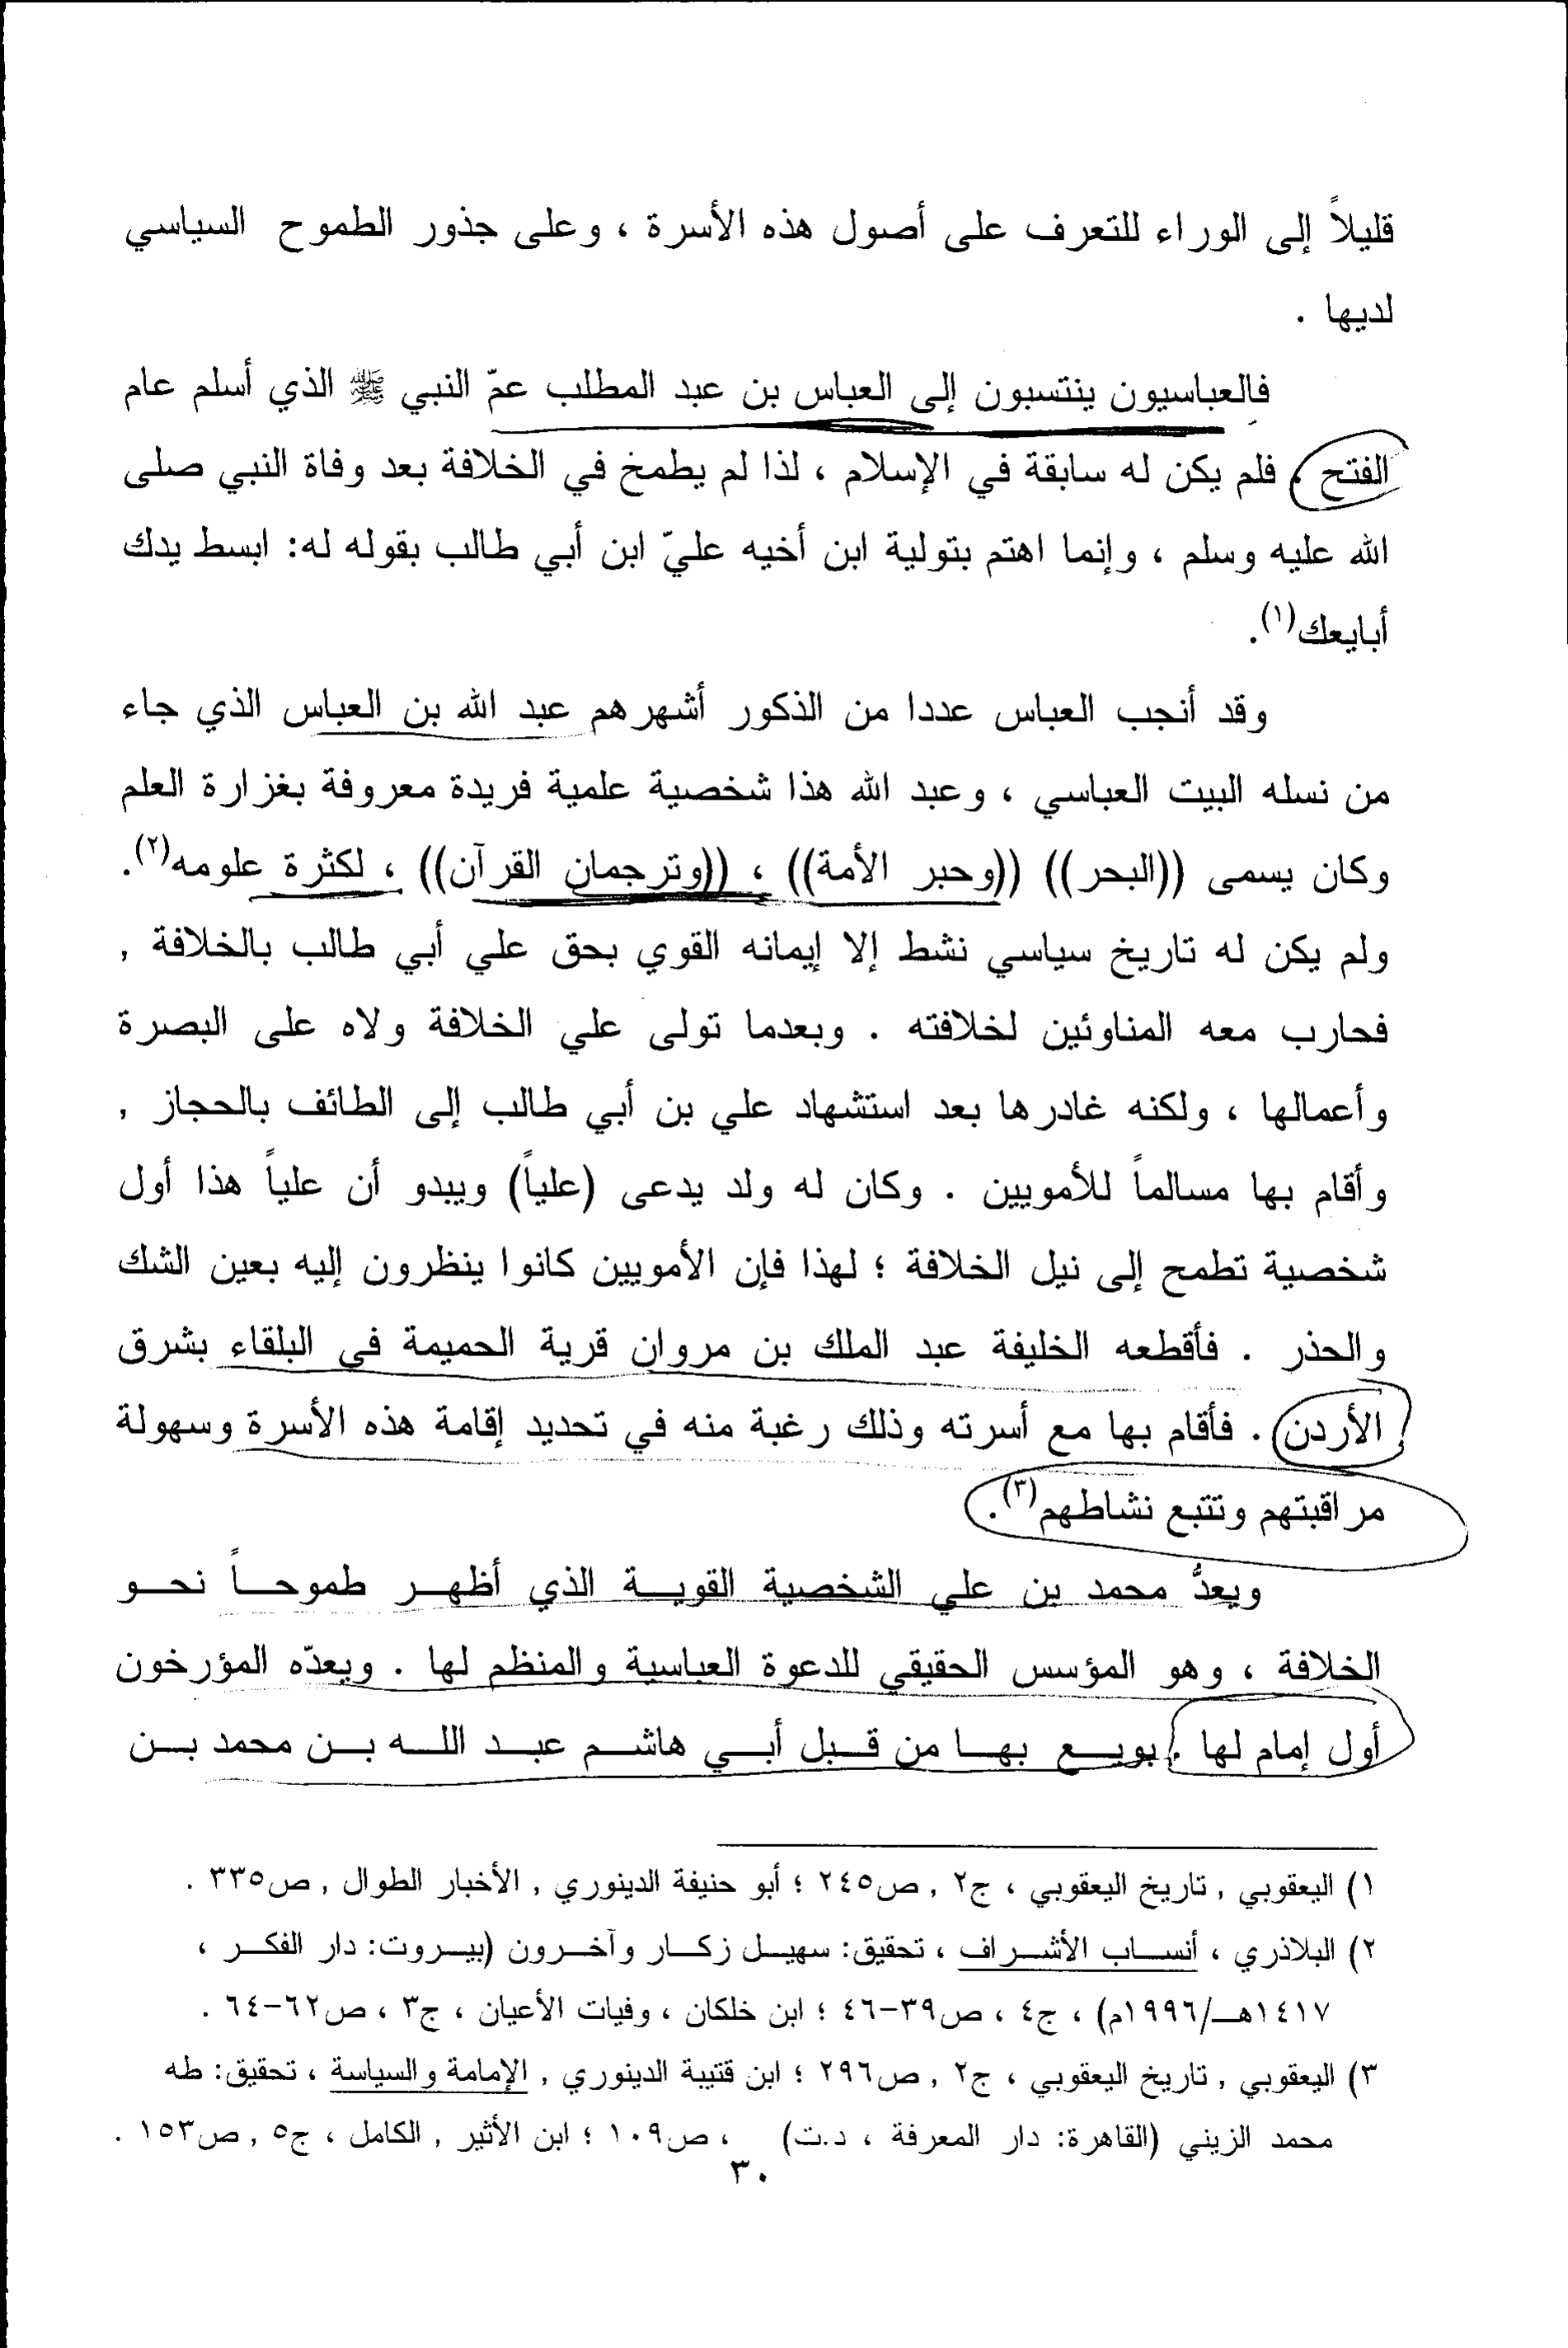 قليلاً إلى الوراء للتعرف على أصول هذه الأسرة ، وعلى جذور الطموح السياسي
لديها .
فالعباسيون ينتسبون إلى العباس بن عبد المطلب عمّ النبي ﷺ الذي أسلم عام
الفتح ، فلم يكن له سابقة في الإسلام ، لذا لم يطمخ في الخلافة بعد وفاة النبي صلى
الله عليه وسلم ، وإنما اهتم بتولية ابن أخيه عليّ ابن أبي طالب بقوله له: ابسط يدك
أبايعك(١).
وقد أنجب العباس عددا من الذكور أشهرهم عبد الله بن العباس الذي جاء
من نسله البيت العباسي ، وعبد الله هذا شخصية علمية فريدة معروفة بغزارة العلم
وكان يسمى ((البحر)) ((وحبر الأمة)) ، ((وترجمان القرآن)) ، لكثرة علومه(٢).
ولم يكن له تاريخ سياسي نشط إلا إيمانه القوي بحق علي أبي طالب بالخلافة ,
فحارب معه المناوئين لخلافته . وبعدما تولى علي الخلافة ولاه على البصرة
وأعمالها ، ولكنه غادرها بعد استشهاد علي بن أبي طالب إلى الطائف بالحجاز ,
وأقام بها مسالماً للأمويين . وكان له ولد يدعى (علياً) ويبدو أن علياً هذا أول
شخصية تطمح إلى نيل الخلافة ؛ لهذا فإن الأمويين كانوا ينظرون إليه بعين الشك
والحذر . فأقطعه الخليفة عبد الملك بن مروان قرية الحميمة في البلقاء بشرق
الأردن . فأقام بها مع أسرته وذلك رغبة منه في تحديد إقامة هذه الأسرة وسهولة
مراقبتهم وتتبع نشاطهم(٣).
ويعدُّ محمد بن علي الشخصية القويـة الذي أظهـر طموحـاً نحـو
الخلافة ، وهو المؤسس الحقيقي للدعوة العباسية والمنظم لها . ويعدّه المؤرخون
أول إمام لها . بويـع بهـا من قـبل أبـي هاشـم عبـد اللـه بـن محمد بـن
١) اليعقوبي , تاريخ اليعقوبي ، ج٢ , ص٢٤٥ ؛ أبو حنيفة الدينوري , الأخبار الطوال , ص٣٣٥ .
٢) البلاذري ، أنسـاب الأشـراف ، تحقيق: سهيـل زكـار وآخـرون (بيـروت: دار الفكـر ،
١٤١٧هـ/١٩٩٦م) ، ج٤ ، ص٣٩-٤٦ ؛ ابن خلكان ، وفيات الأعيان ، ج٣ ، ص٦٢-٦٤ .
٣) اليعقوبي , تاريخ اليعقوبي ، ج٢ , ص٢٩٦ ؛ ابن قتيبة الدينوري , الإمامة والسياسة ، تحقيق: طه
محمد الزيني (القاهرة: دار المعرفة ، د.ت) ، ص١٠٩ ؛ ابن الأثير , الكامل ، ج٥ , ص١٥٣ .
٣٠